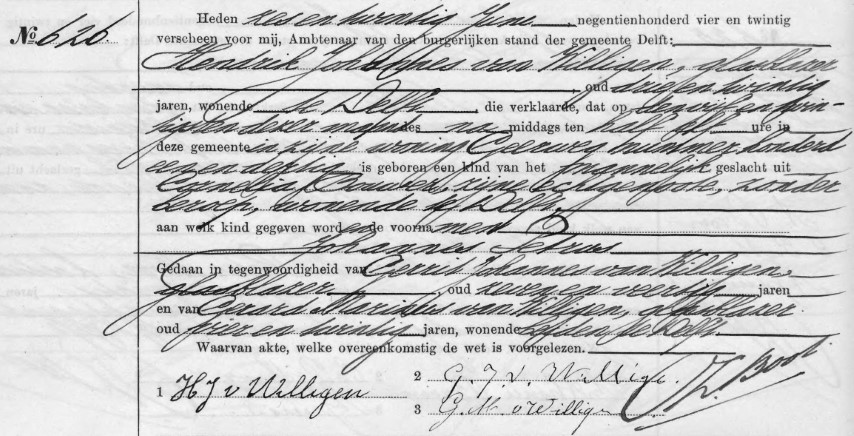 Heden zes en twintig Juni, negentienhonderd vier en twintig
No. 620. verscheen voor mij, Ambtenaar van den burgerlijken stand der gemeente Delft:
Hendrik Johannes van Willigen, glasblazer
, oud drie en twintig
jaren, wonende te Delft, die verklaarde, dat op den vijf en twin-
tigsten dezer maand des na middags ten half ure in
deze gemeente in zijne woning nummer honderd
een en dertig is geboren een kind van het mannelijk geslacht uit
Cornelia zijne echtgenoote, zonder
beroep, wonende te Delft,
aan welk kind gegeven worden de voornamen
Johannes Petrus
Gedaan in tegenwoordigheid van Gerrit Johannes van Willigen,
glasblazer, oud zeven en veertig jaren
en van Gerard Marinus van Willigen, glasblazer
oud vier en twintig jaren, wonende beiden te Delft
Waarvan akte, welke overeenkomstig de wet is voorgelezen.
1 H J v Willigen
2 G. J. v. Willige.
3 G. M. v Willigen
Boot